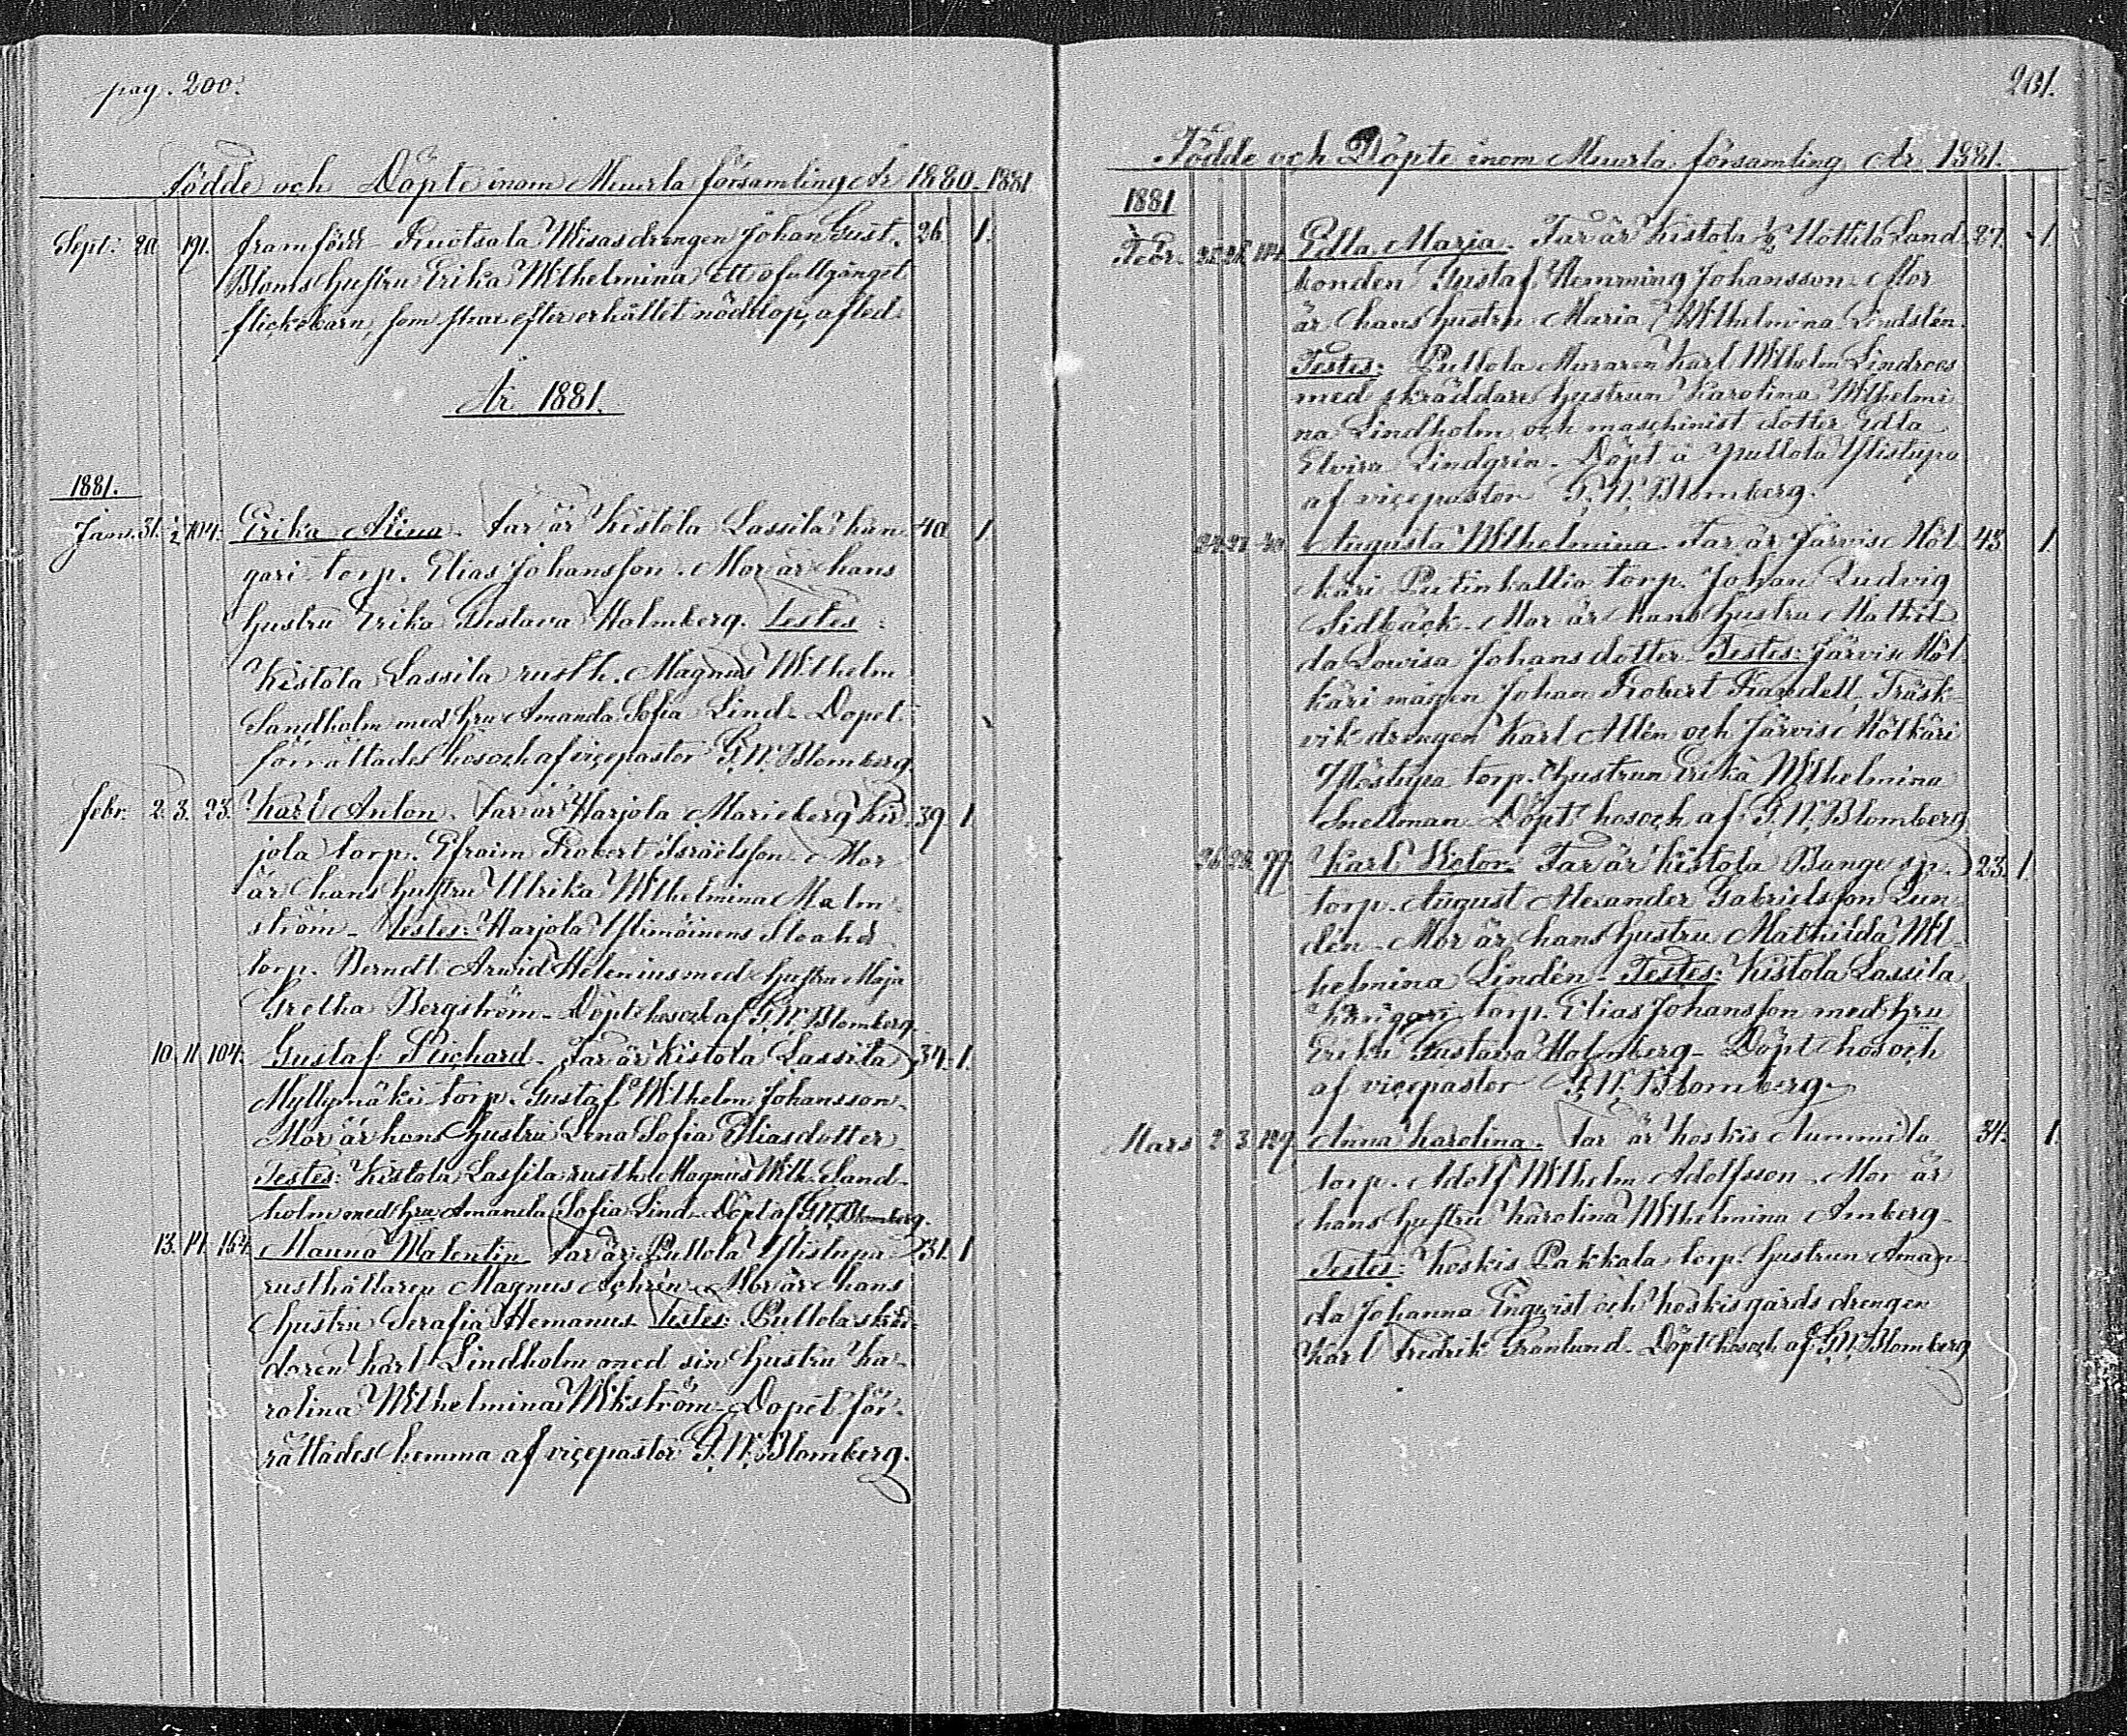 pag. 200.
Födde och Döpte inom Muurla församling År 1880-1881
Sept: 20. 191. framförr Ruotsala Wisas drengen Johan Gust. 26. 1.
Bloms hustru Erika Wilhelmina ett ofullgånget
flickebarn, som strax efter erhållet nöddop, afled.
År 1881.
1881.
Janu. 31. 2 104. Erika Alina. Far är Kistola Lassila Kan- 40. 1
gari torp. Elias Johansson. Mor är hans
hustru Erika Gustava Holmberg. Testes:
Kistola Lassila rusth. Magnus Wilhelm
Sandholm med hru Amanda Sofia Lind. Dopet
förrättades hos och af vicepastor G.W. Blomberg.
febr. 2. 3. 23. Karl Anton. Far är Harjola Marieberg Kir- 39 1
jola torp. Efraim Robert Israelsson. Mor
är hans hustru Ulrika Wilhelmina Malm-
ström. Testes: Harjola Ylimöinens
torp. Berndt Arwid Helenius med hustru Maja
Gretha Bergström. Döpt hos och af G.W. Blomberg.
10. 11. 104. Gustaf Richard. Far är Kistola Lassila 34. 1.
Myllymäki torp. Gustaf Wilhelm Johansson.
Mor är hans hustru Lena Sofia Eliasdotter
Testes: Kistola Lassila rusth. Magnus Wilh. Sand-
holm med hru Amanda Sofia Lind. Döpt af G.W. Blomberg.
13. 14. 154. Mauna Walentin. Far är Pullola Ylistupa 31. 1
rusthållaren Magnus Achrén. Mor är hans
hustru Serafia Hemanus. Testes: Pullola skräd-
daren Karl Lindholm med sin hustru Ka-
rolina Wilhelmina Wikström. Dopet för-
rättades hemma af vicepastor G.W. Blomberg.
201.
Födde och Döpte inom Muurla församling År 1881.
1881
Febr. Edla Maria. Far är Kistola ½ Uottila Land- 27. 1.
bonden Gustaf Hemming Johansson. Mor
är hans hustru Maria Wilhelmina Lindstén.
Testes: Pullola Muraren Karl Wilhelm Lindroos
med skräddare hustrun Karolina Wilhelmi
na Lindholm och maschinist dotter Edla
Elvira Lindgrén. Döpt å Pullola Ylistupa
af vicepastor G.W. Blomberg.
24. 27. Augusta Wilhelmina. Far är Järvis Höl- 43. 1.
käri Putinkallio torp. Johan Ludvig
Sidbäck. Mor är hans hustru Mathil
da Lovisa Johansdotter. Testes: Järvis Höl-
käri mågen Johan Robert Randell, Träsk-
vik drengen Karl Allén och Järvis Hölkäri
Ylöstupa torp. hustrun Erika Wilhelmina
Snellman. Döpt hos och af G.W. Blomberg
26. 28. 97. Karl Victor. Far är Kistola Bange 23. 1.
torp. August Alexander Gabrielsson Lin-
dén. Mor är hans hustru Mathilda Wil-
helmina Lindén. Testes: Kistola Lassila
Kangari torp. Elias Johansson med hru
Erika Gustava Holmberg. Döpt hos och
af vicepastor G.W. Blomberg
Mars 2. 3. 129. Anna Karolina. Far är Koskis Aummila 34. 1.
torp. Adolf Wilhelm Adolfsson. Mor är
hans hustru Karolina Wilhelmina Amberg.
Testes: Koskis Pakkala torp. hustrun Aman-
da Johanna Enqvist och Koskis gårds drengen
Karl Fredrik Granlund. Döpt hos och af G.W. Blomberg